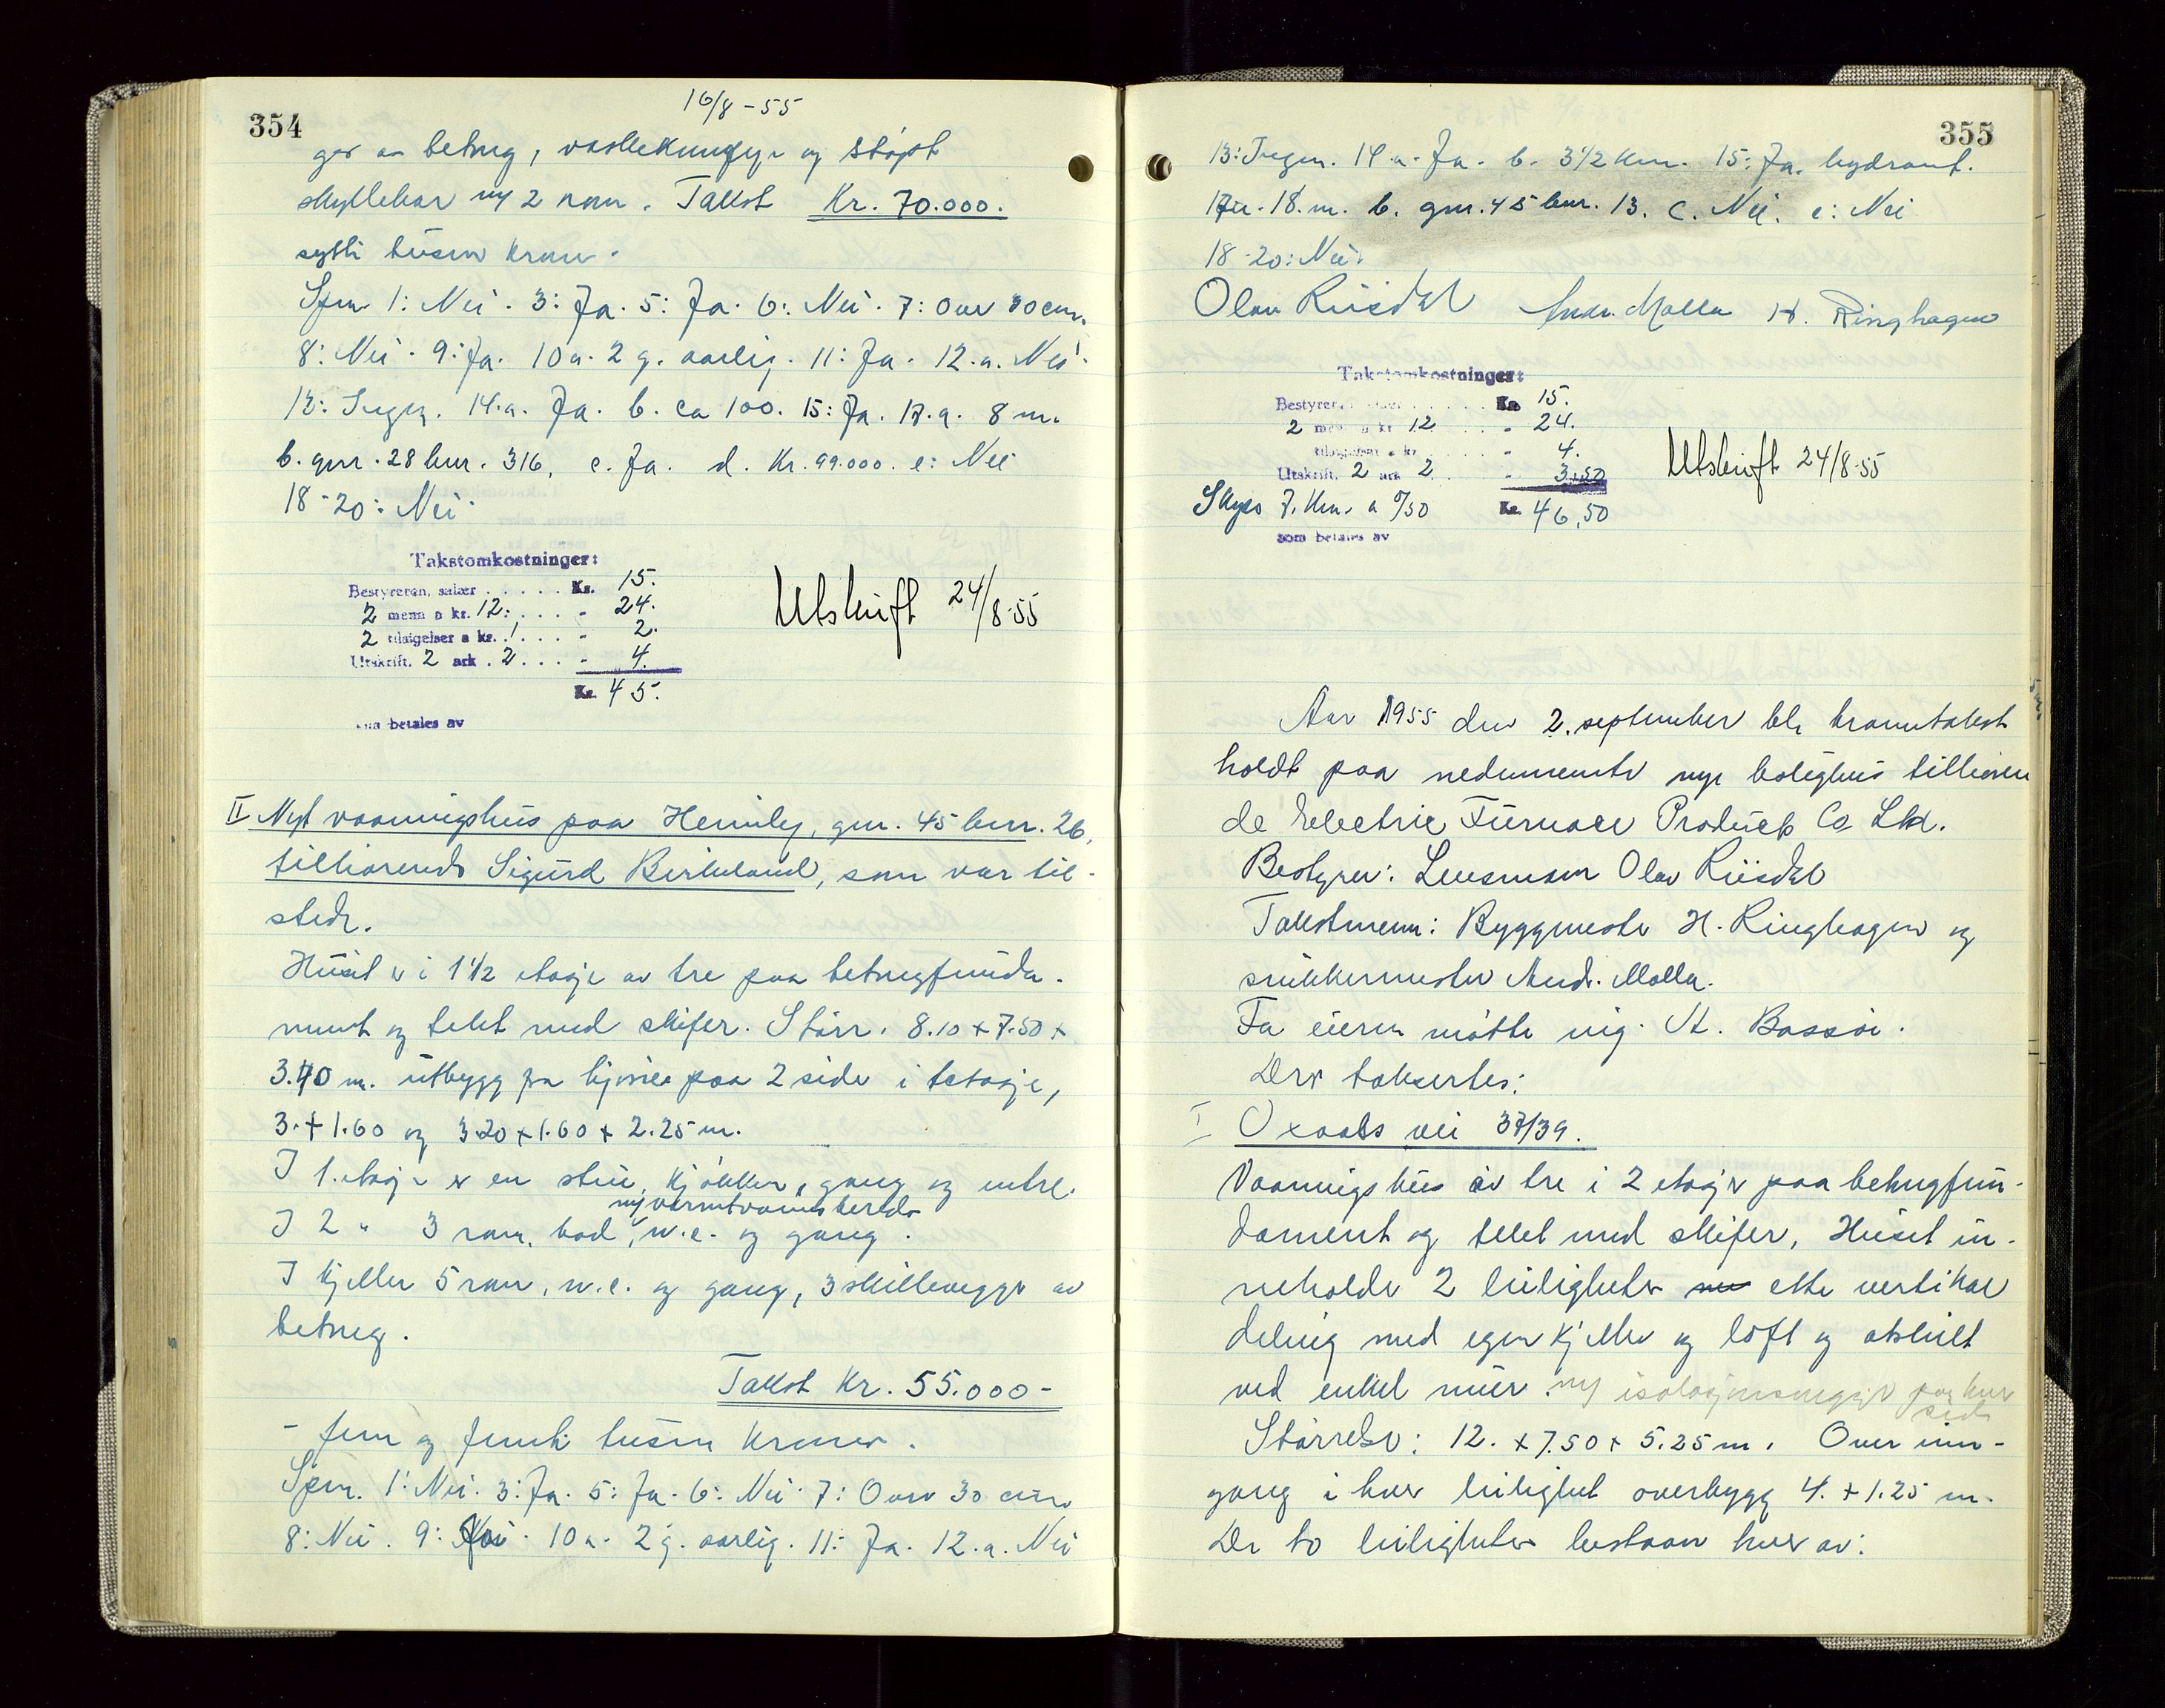 354
16/8-55
ger av betong, vaskekum og støpt
skyllekar og 2 rom. Takst Kr. 70.000.
sytti tusen kroner.
Spm 1: Nei. 3: Ja. 5: Ja. 6: Nei. 7: Over 30 cm.
8: Nei. 9: Ja. 10 a. 2 g. aarlig. 11: Ja. 12.a. Nei.
13: Ingen. 14.a. Ja. b. ca 100. 15: Ja. 17.a. 8 m.
b. gnr. 28 bnr. 316. c. Ja. d. Kr. 99.000. e: Nei
18-20: Nei.
Takstomkostninger:
Bestyreren, salær . . . . . Kr. 15.
2 menn a kr. 12. . . . - 24.
2 tilsigelser a kr. 1. . . . - 2.
Utskrift. 2 ark . 2 . . . - 4.
Kr. 45.
betales av
Utskrift 24/8-55
II Nyt vaaningshus paa Heimly, gnr. 45 bnr. 26,
tilhørende Sigurd Birkeland, som var til-
stede.
Huset er i 1 1/2 etasje av tre paa betongfunda-
ment og tekt med skifer. Størr. 8.10 x 7.50 x
3.70 m. utbygg fra hjørne paa 2 sider i 1 etasje,
3. x 1.60 og 3.20 x 1.60 x 2.25 m.
I 1. etasje er en stue, kjøkken, gang og entre.
og varmtvannsbereder
I 2 " 3 rom, bad, w.c. og gang.
I kjeller 5 rom, w.c. og gang, 3 skillevegger av
betong.
Takst Kr. 55.000-
- fem og femti tusen kroner.
Spm. 1: Nei. 3: Ja. 5: Ja. 6: Nei. 7: Over 30 cm
8: Nei. 9: Nei. 10 a. 2 g. aarlig. 11: Ja. 12. a. Nei
355
13: Ingen. 14.a. Ja. b. 3 1/2 km. 15: Ja. hydrant.
17a. 18. m. b. gnr. 45 bnr. 13. c. Nei. e: Nei
18-20: Nei.
Olav Risdal Andr. Molla H. Ringhagen
Takstomkostninger:
Bestyreren, salær . . . . Kr. 15.
2 menn a kr 12 . . . - 24.
tilsigelser a kr . . . - 4.
Utskrift. 2 ark 2 . . - 3.50
Skyss 7. km. a 0/50 Kr. 46,50
som betales av
Utskrift 24/8-55
Aar 1955 den 2. september ble branntakst
holdt paa nedennevnte nye bolighus tilhøren
de Electric Furnace Products Co Ltd.
Bestyrer: Lensmann Olav Risdal
Takstmenn: Byggmester H. Ringhagen og
snikkermester Andr. Molla.
For eieren møtte ing. A. Bassøe.
Der taksertes:
I Oxaals vei 37/39.
Vaaningshus av tre i 2 etasjer paa betongfun-
dament og tekt med skifer, Huset in-
neholder 2 leiligheter etter vertikal
deling med egen kjeller og loft og atskilt
ved enkel mur og isolasjonsvegger paa hver
side
Størrelse: 12. x 7.50 x 5.25 m. Over inn-
gang i hver leilighet overbygg 4. x 1.25 m.
De to leiligheter bestaar hver av: